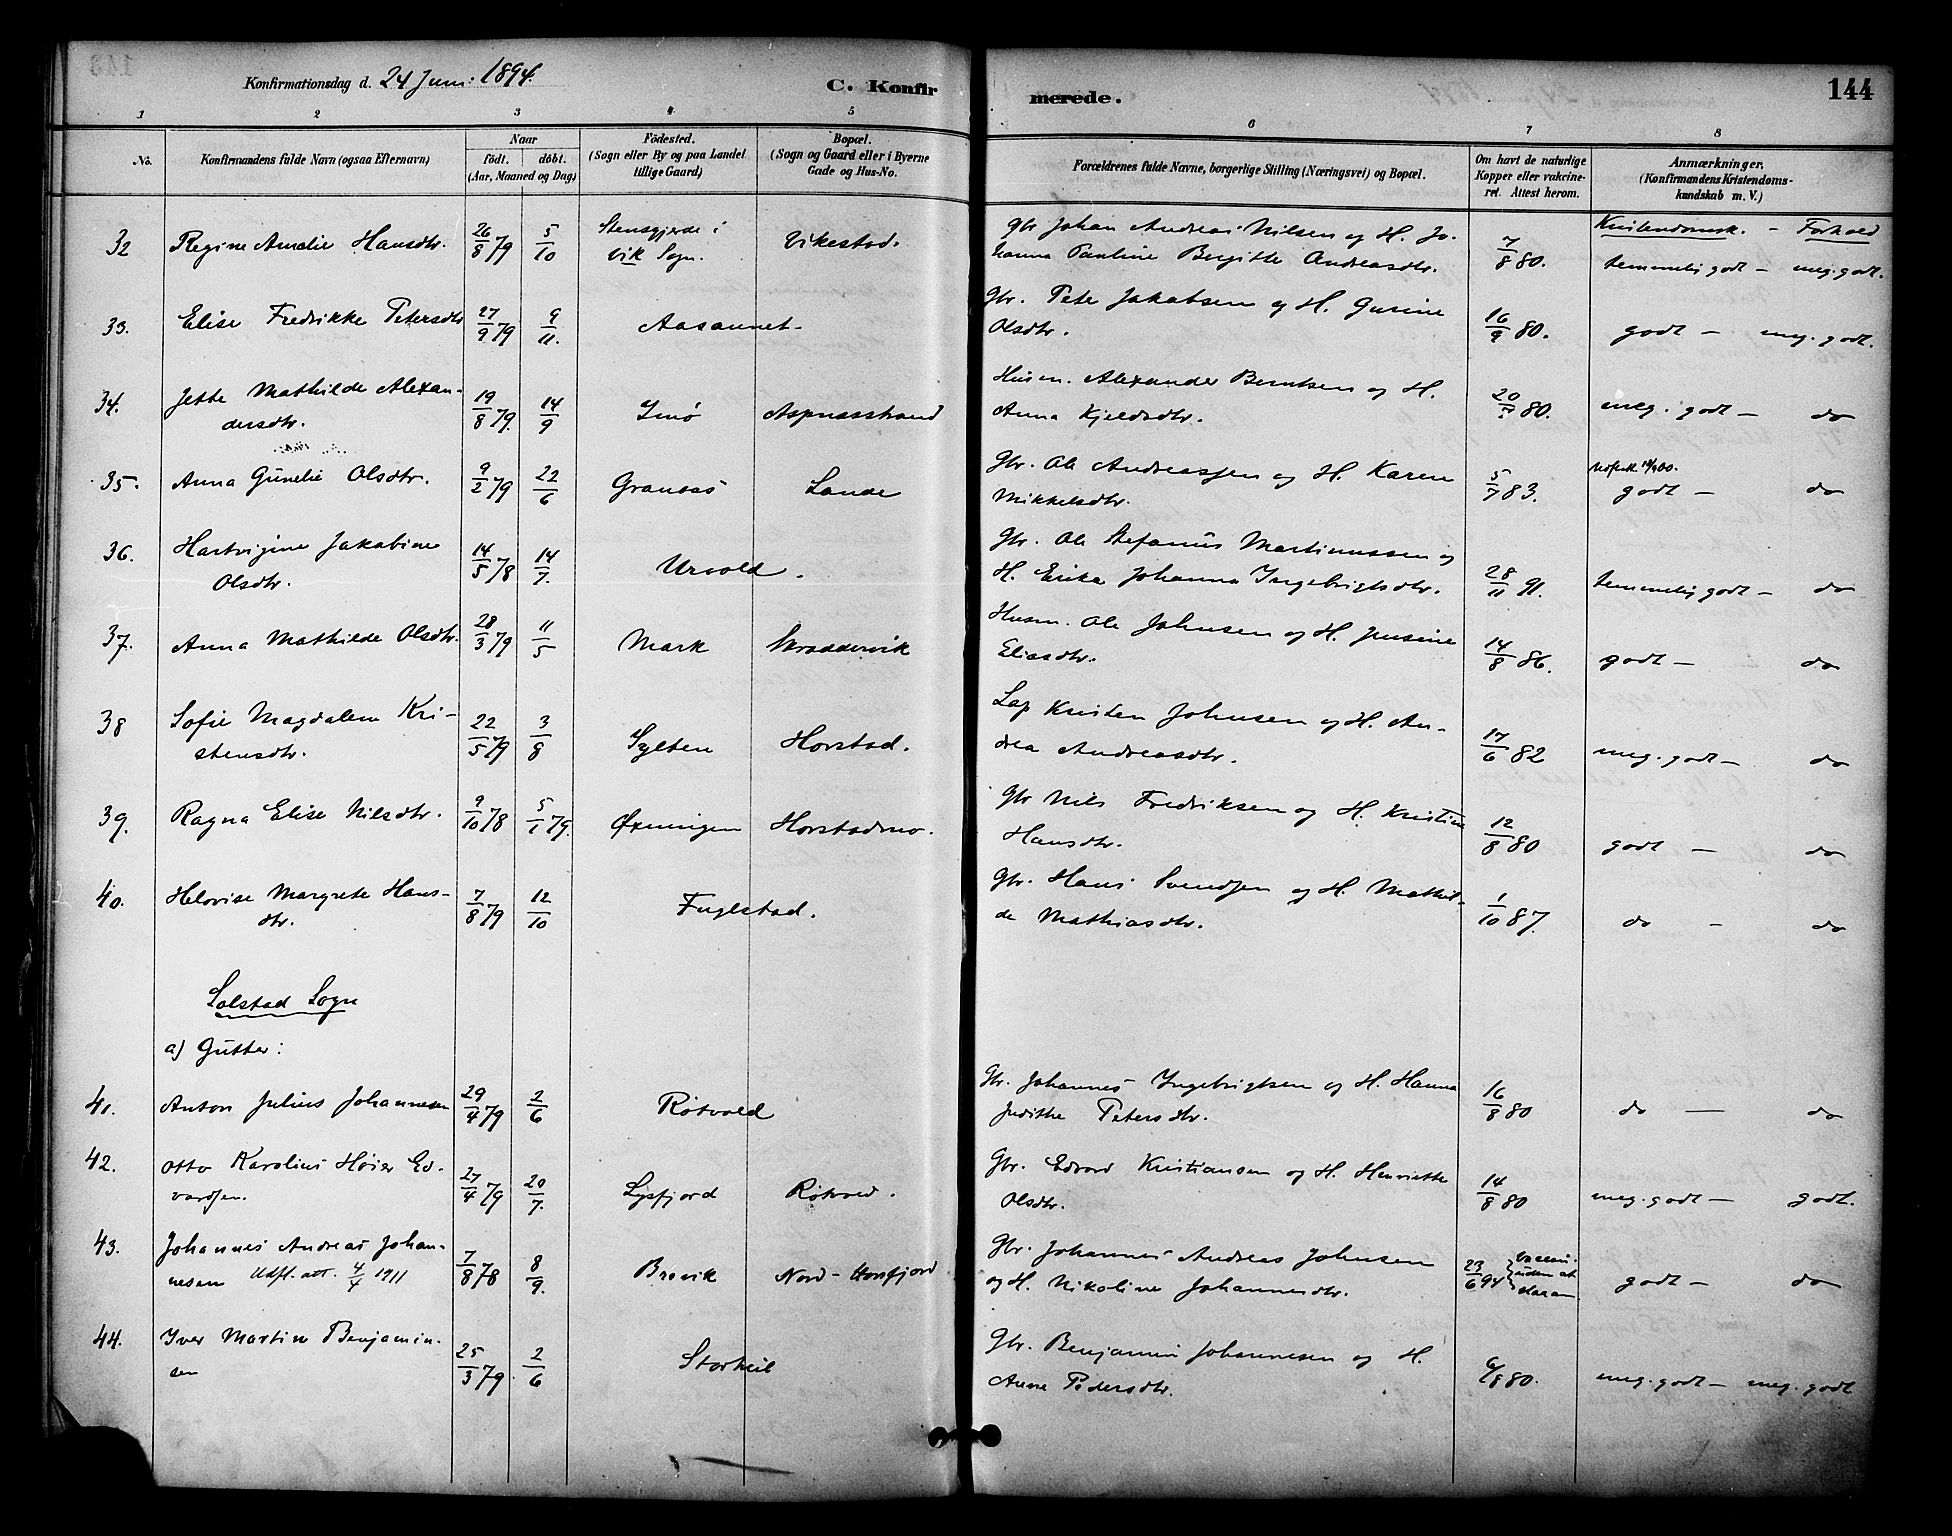 Konfirmationsdag d. 24 Juni 1894.
C. Konfirmerede.
144
1 2 3 4 5 6 7 8
No.
Konfirmandens fulde Navn (ogsaa Efternavn)
Naar
födt. döbt.
(Aar, Maaned og Dag)
Födested.
(Sogn eller By og paa Landet
tillige Gaard)
Bopæl.
(Sogn og Gaard eller i Byerne
Gade og Hus-No.
Forældrenes fulde Navne, borgerlige Stilling (Næringsvei) og Bopæl.
Om havt de naturlige
Kopper eller vakcine-
ret. Attest herom.
Anmærkninger.
(Konfirmandens Kristendoms-
kundskab m. V.)
Kristendomsk. – Forhold
32 Regine Amalie Hansdtr. 26/8 79 5/10 Stensgjerde i
vik Sogn. Vikestad. Gbr Johan Andreas Nilsen og H. Jo-
hanna Pauline Bergitte Andreasdtr. 7/8 80. temmelig godt – meg. godt.
33. Elise Fredrikke Petersdtr 27/9 79 9/11. Aasaunet Gbr. Peter Jakobsen og H. Gusine
Olsdtr. 16/9 80. godt – meg. godt.
34. Jette Mathilde Alexan-
dersdtr. 19/8 79. 14/9 Imø Aspnesstrand Husm. Alexander Berntsen og H.
Anna Kjeldsdtr. 20/ 80. meg. godt – do
35. Anna Gunelie Olsdtr. 9/2 79 22/6 Granaas Lande Gbr. Ole Andreassen og H. Karen
Mikkelsdtr. 5/7 83. godt – do
36. Hartvigine Jakobine
Olsdtr. 14/5 78 14/7. Urvold. Gbr. Ole Stefanus Martinussen og
H. Erika Johanna Ingebrigtsdtr. 28/11 91. temmelig godt – do
37. Anna Mathilde Olsdtr. 28/3 79 11/5 Mark Husm. Ole Johnsen og H. Jusine
Eliasdtr. 14/8 86. godt – do
38 Sofie Magdalena Kri-
stensdtr. 22/5 79 3/8 Sylten Horstad. Lap Kristen Johnsen og H. An-
drea Andreasdtr. 17/6 82 meg. godt – do
39. Ragna Elise Nilsdtr. 9/10 78 5/1 79. Øxningen Horstadmo. Gbr Nils Fredriksen og H. Kristine
Hansdtr. 12/8 80 godt – do
40. Helovise Margrete Hans-
dtr. 7/8 79 12/10 Fuglstad. Gbr. Hans Svendsen og H. Mathil-
de Mathiasdtr. 1/10 87. do – do
Solstad Sogn
a) Gutter:
41. Anton Julius Johannesen 29/4 79 2/6 Røtvold Gbr. Johannes Ingebrigtsen og H. Hanna
Judithe Petersdtr. 16/8 80 do – do
42. Otto Karolius Høier Ed-
vardsen. 27/4 79 20/7. Lysfjord Røtvold. Gbr. Edvard Kristiansen og H. Henriette
Olsdtr. 14/8 80 meg. godt – godt.
43. Johannes Andreas Johan-
nesen Udfl. att. 4/4 1911 7/8 78 8/9. Brevik Nord-Horsfjord Gbr. Johannes Andreas Johnsen
og H. Nikoline Johannesdtr. 23/6 94 godt – do
44. Iver Martin Benjamin-
sen 25/3 79 2/6 Storheil Gbr. Benjamin Johannesen og H.
Anne Pedersdtr. 6/8 80. meg. godt – meg. godt